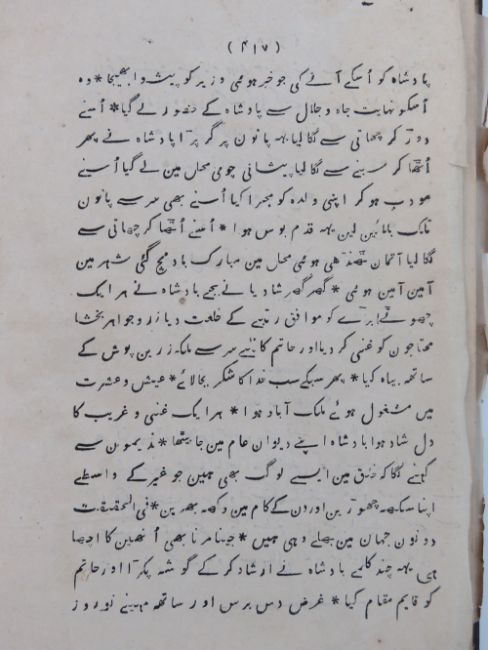 ( ۴۱۷ )
پادشاہ کو اُسکے آنے کی جو خبر ہوئی وزیر کو پیشوا بھیجا * وہ
اُسکو نہایت جاہ و جلال سے پادشاہ کے حضور لے گیا * اُسنے
دوڑ کر چھاتی سے لگا لیا یہہ پانون پر گر پڑا پادشاہ نے پھر
اُٹھا کر سینے سے لگا لیا پیشانی چومی محل مین لے گیا اُسنے
مودب ہوکر اپنی والدہ کو مجرا کیا اُسنے بھی سر سے پانون
تلک بلائین لین یہہ قدم بوس ہوا * اُسنے اُٹھا کر چھاتی سے
لگا لیا آنکھان ٹھنڈھی ہوئی محل مین مبارک باد مچ گئی شہر مین
آمین آمین ہوئی * گھر گھر شادیانے بجے بادشاہ نے ہر ایک
چھوٹے بڑے کو موافق رتبے کے خلعت دیا زر و جواہر بخشا
محتاجون کو غنی کر دیا اور حاتم کا نئے سر سے ملکہ زرین پوش کے
ساتھہ بیاہ کیا * پھر سبکے سب خدا کا شکر بجا لائے * عیش و عشرت
میں مشغول ہوئے ملک آباد ہوا * ہر ایک غنی و غریب کا
دل شاد ہوا بادشاہ اپنے دیوان عام مین جا بیٹھا * ندیمون سے
کہنے لگا کہ خلق مین ایسے لوگ بھی ہمین جو غیر کے واسطے
اپنا سکھہ چھوڑین اور دن کے کام مین دکھہ بھرین * فی الحقیقت
دونون جہان مین بھلے وہی ہمین * جینا مرنا بھی اُنھین کا اچھا
ہی یہہ چند کلمے بادشاہ نے ارشاد کر کے گوشہ پکڑا اور حاتم
کو قایم مقام کیا * غرض دس برس اور سات مہینے نو روز